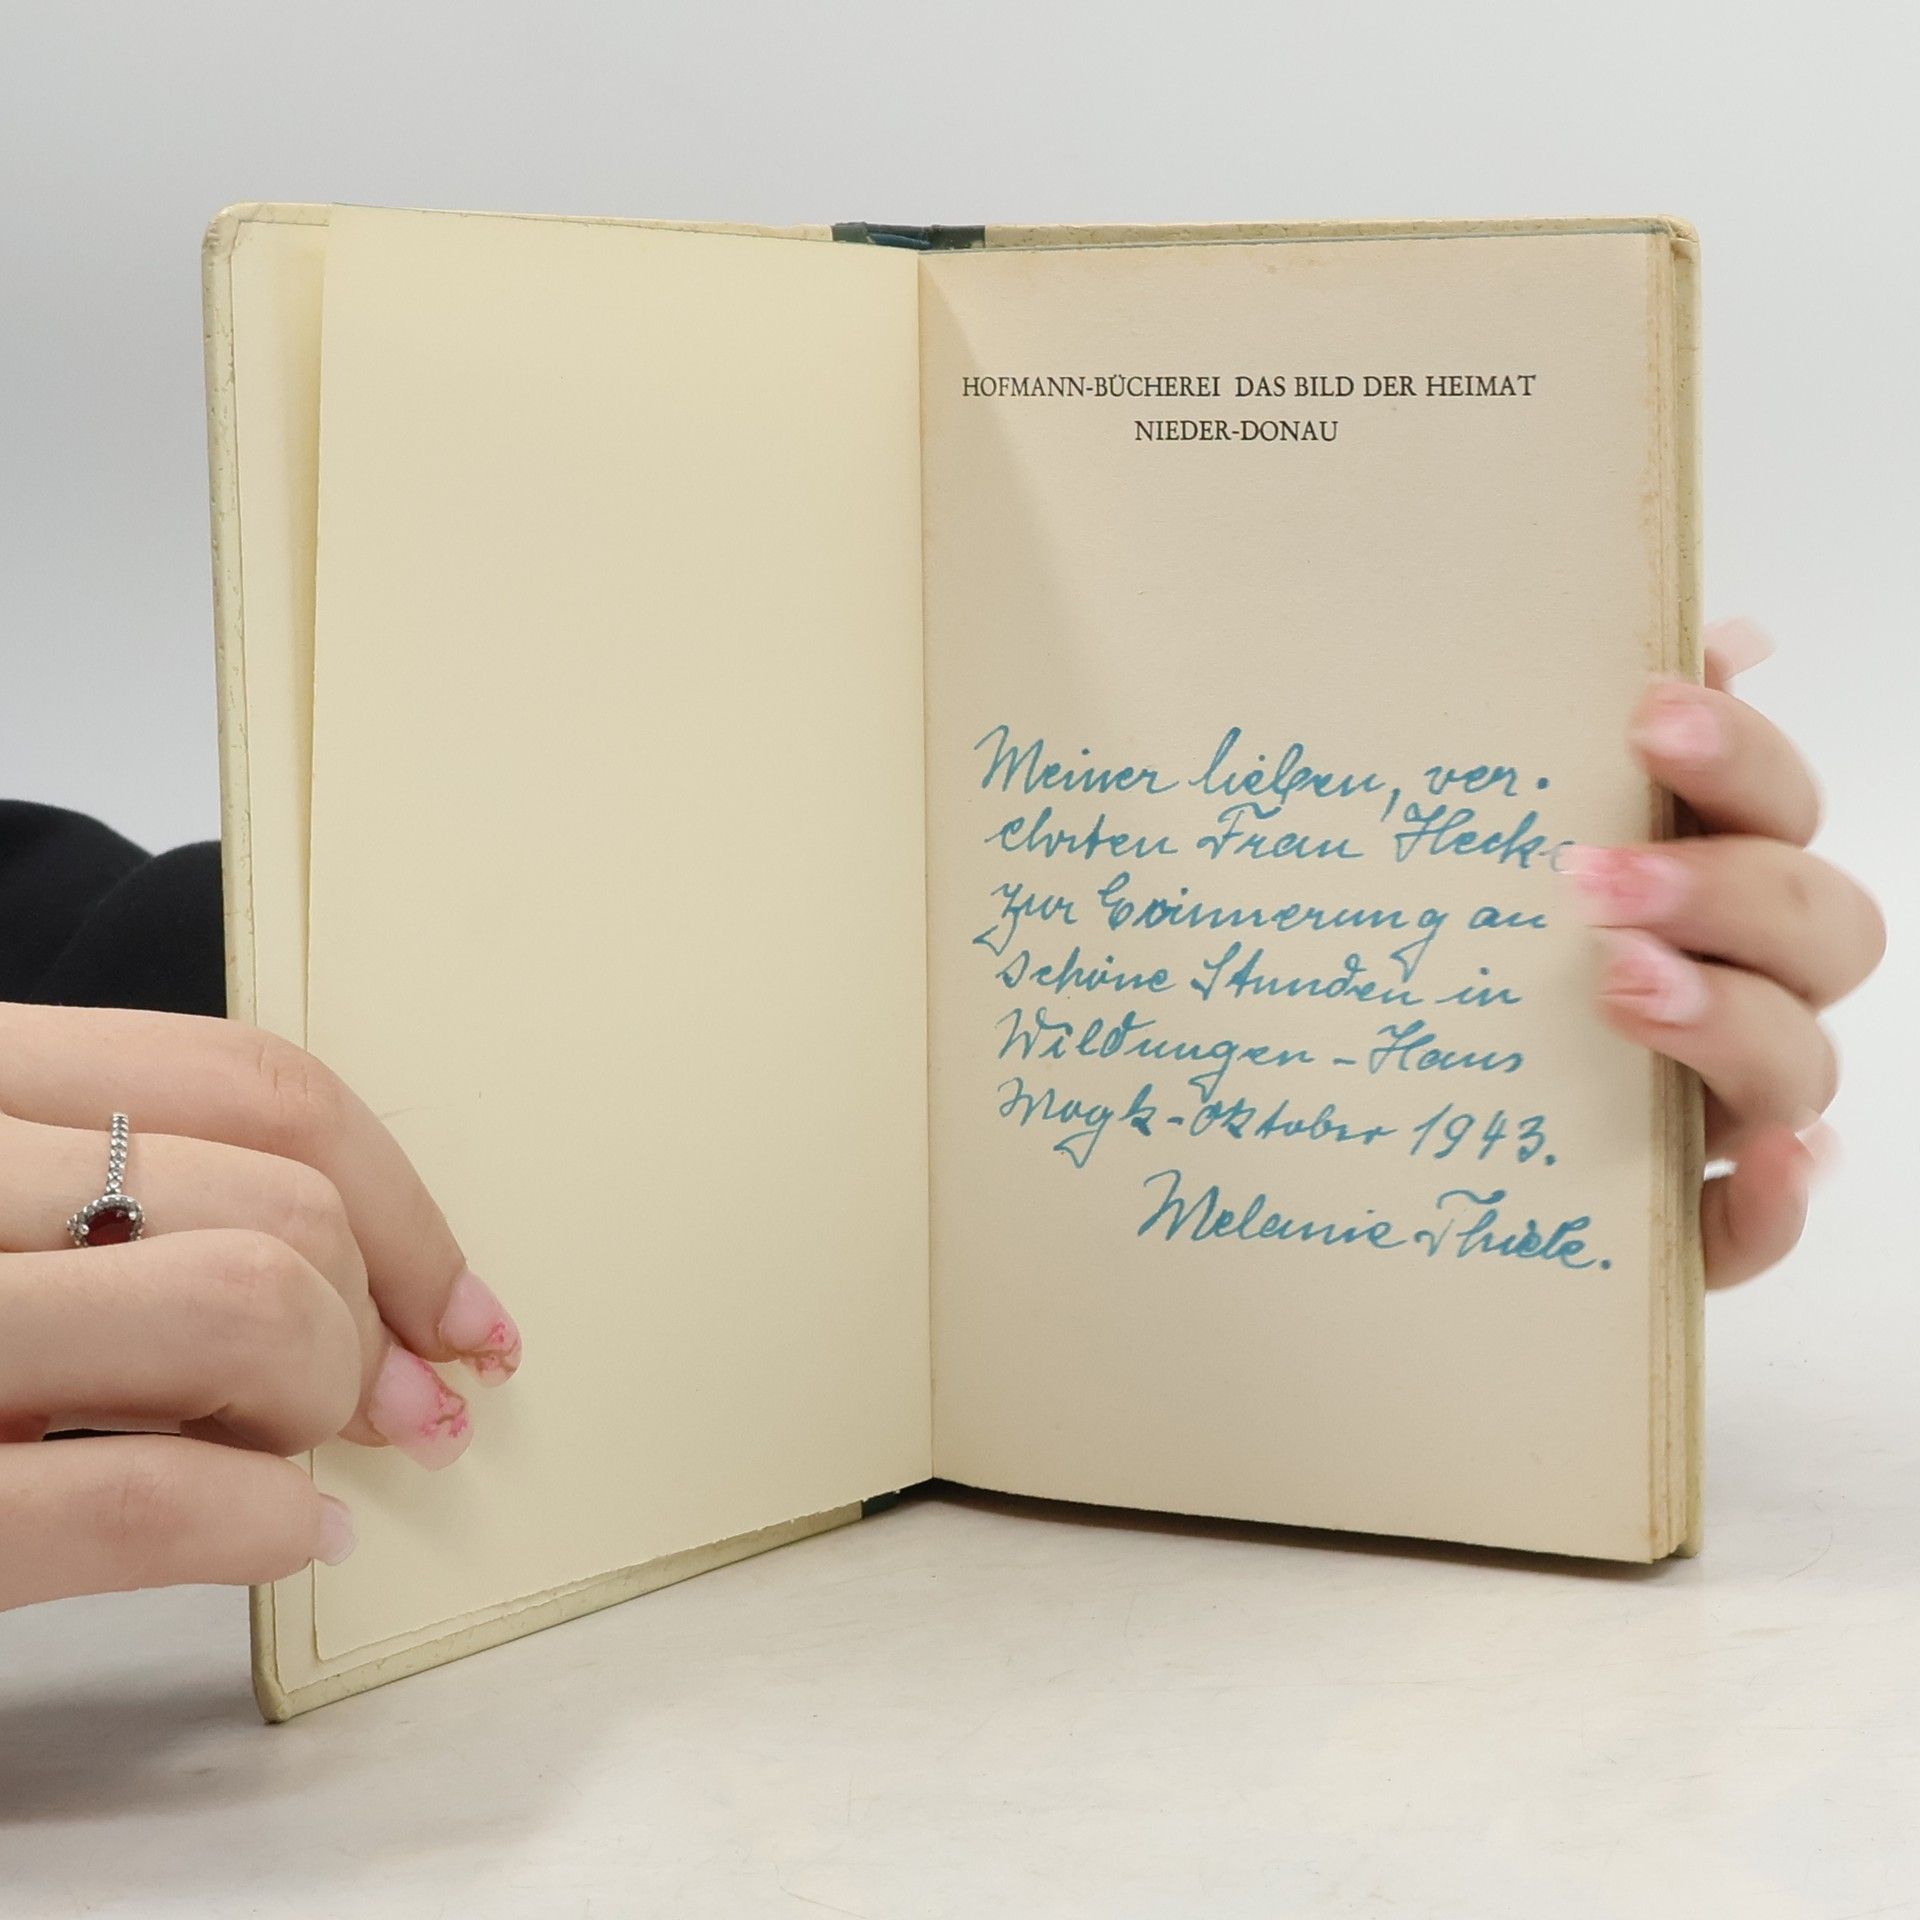 HOFMANN-BÜCHEREI DAS BILD DER HEIMAT
NIEDER-DONAU
Meiner lieben, ver-
ehrten Frau
zur Erinnerung an
schöne Stunden in
Wildungen - Haus
Mogk - Oktober 1943.
Melanie Thiele.